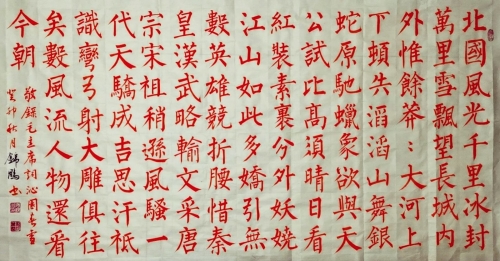 北國風光千里冰封
萬里雪飄望長城內
外惟餘莽:大河上
下頓失滔滔山舞銀
蛇原馳蠟象欲與天
公試比高須晴日看
紅裝素裹分外妖嬈
江山如此多嬌引無
數英雄競折腰惜秦
皇漢武略輸文采唐
宗宋祖稍遜風騷一
代天驕成吉思汗祗
識彎弓射大雕俱往
矣數風流人物還看
今朝
敬錄毛主席詞沁園春雪
癸卯秋月錦鵬書